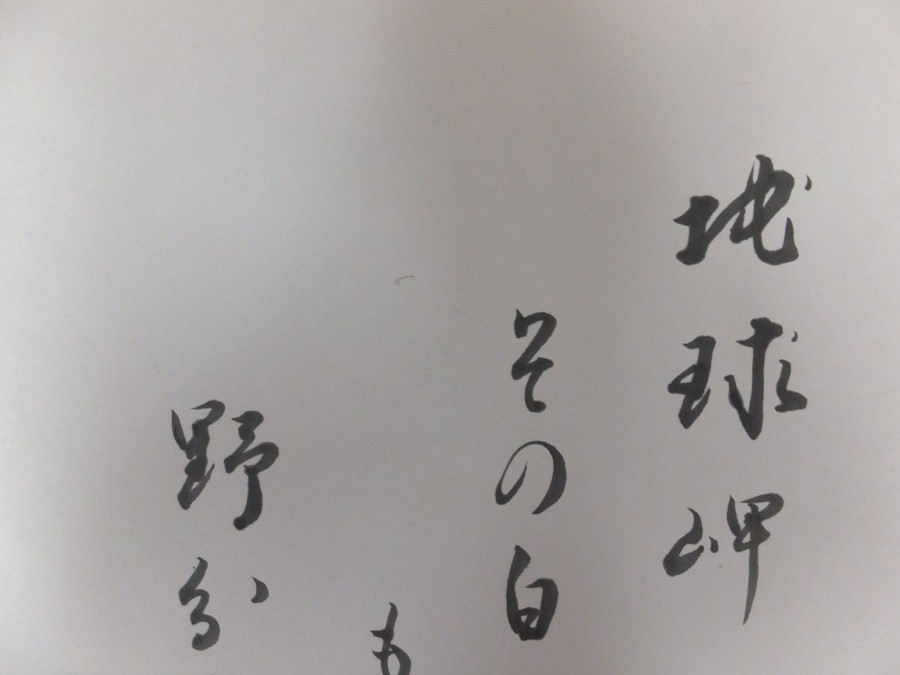 地球岬
その白
も
野分